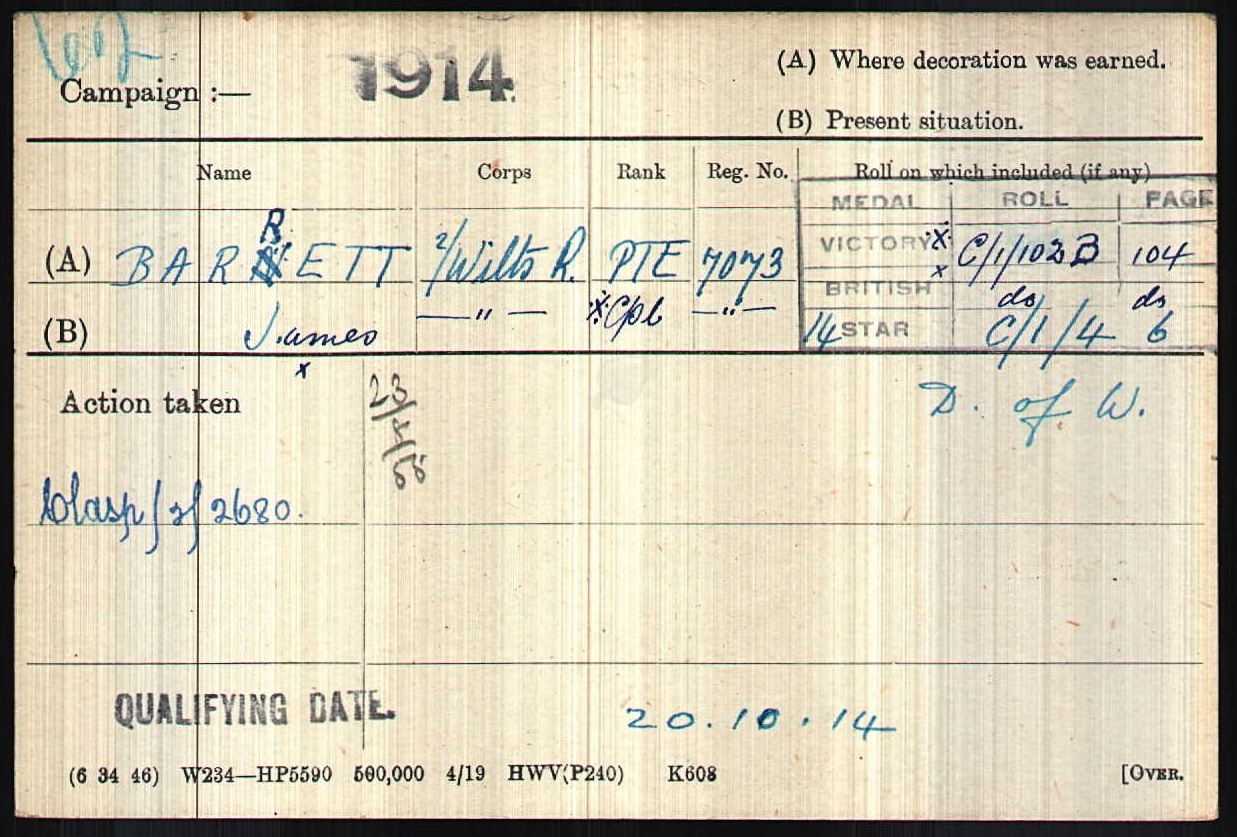 602
Campaign :— 1914. (A) Where decoration was earned.
(B) Present situation.
Name Corps Rank Reg. No. Roll on which included (if any)
MEDAL ROLL PAGE
(A) BARRETT 2/Wilts R. PTE 7073 VICTORY x C/1/102 B 104
x BRITISH do do
(B) James —"— x Cpl —"— 14 STAR C/1/4 6
x
Action taken D. of W.
Clasp/2/2680.
QUALIFYING DATE. 20.10.14
(6 34 46) W234—HP5590 500,000 4/19 HWV(P240) K608 [OVER.